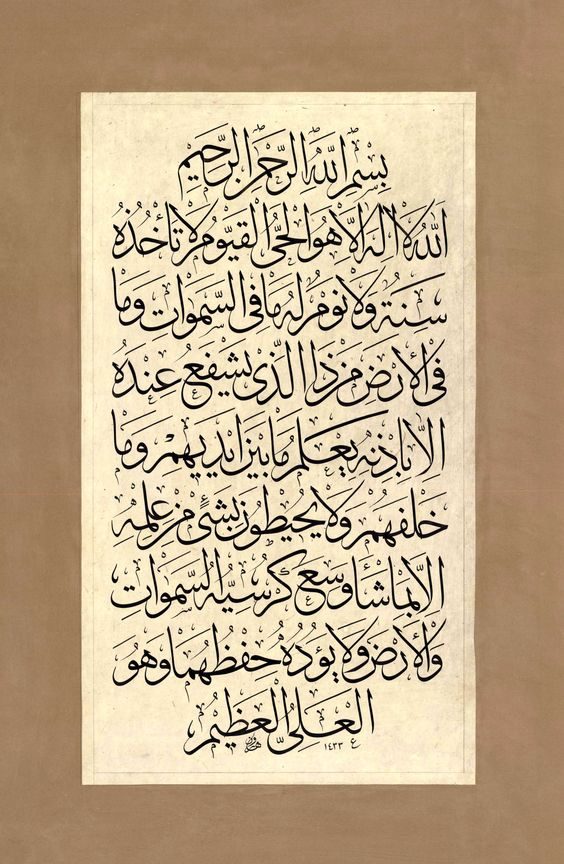 بِسْمِ اللّٰهِ الرَّحْمٰنِ الرَّحِيمِ
اللّٰهُ لَا اِلٰهَ اِلَّا هُوَ الْحَىُّ الْقَيُّومُ لَا تَأْخُذُهُ
سِنَةٌ وَلَا نَوْمٌ لَهُ مَا فِى السَّمٰوَاتِ وَمَا
فِى الْاَرْضِ مَنْ ذَا الَّذِى يَشْفَعُ عِنْدَهُ
اِلَّا بِاِذْنِهِ يَعْلَمُ مَا بَيْنَ اَيْدِيهِمْ وَمَا
خَلْفَهُمْ وَلَا يُحِيطُونَ بِشَىْءٍ مِنْ عِلْمِهِ
اِلَّا بِمَا شَاءَ وَسِعَ كُرْسِيُّهُ السَّمٰوَاتِ
وَالْاَرْضَ وَلَا يَؤُدُهُ حِفْظُهُمَا وَهُوَ
الْعَلِىُّ الْعَظِيمُ
١٤٣٣